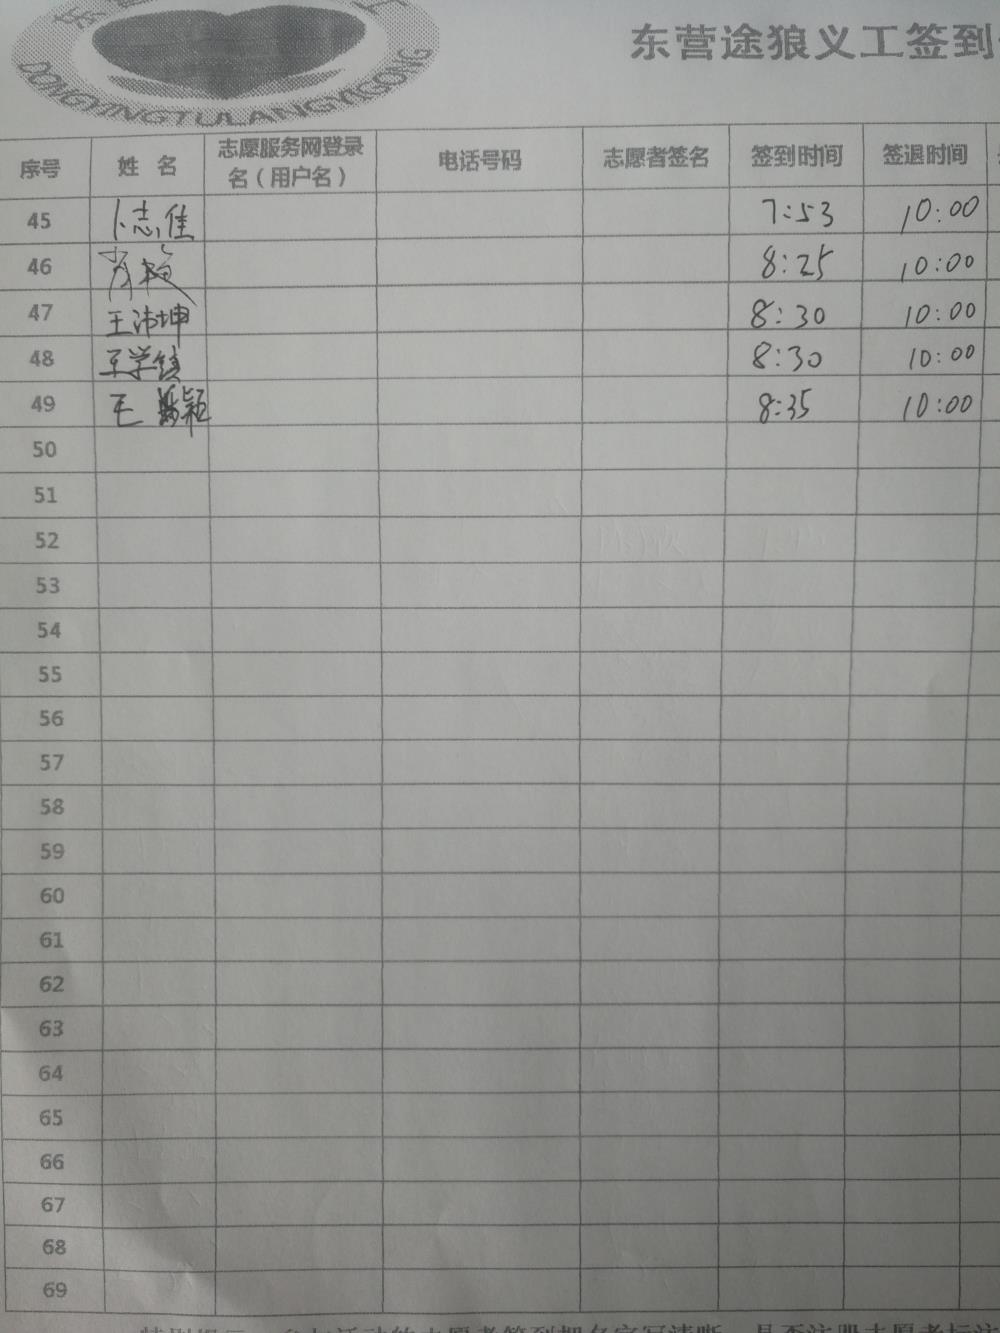 东营
DONGYINGTULANGYIGONG
东营途狼义工签到
序号 姓 名 志愿服务网登录名（用户名） 电话号码 志愿者签名 签到时间 签退时间
45 卜志佳 7:53 10:00
46 8:25 10:00
47 王沛坤 8:30 10:00
48 王学镇 8:30 10:00
49 王 颖 8:35 10:00
50
51
52
53
54
55
56
57
58
59
60
61
62
63
64
65
66
67
68
69